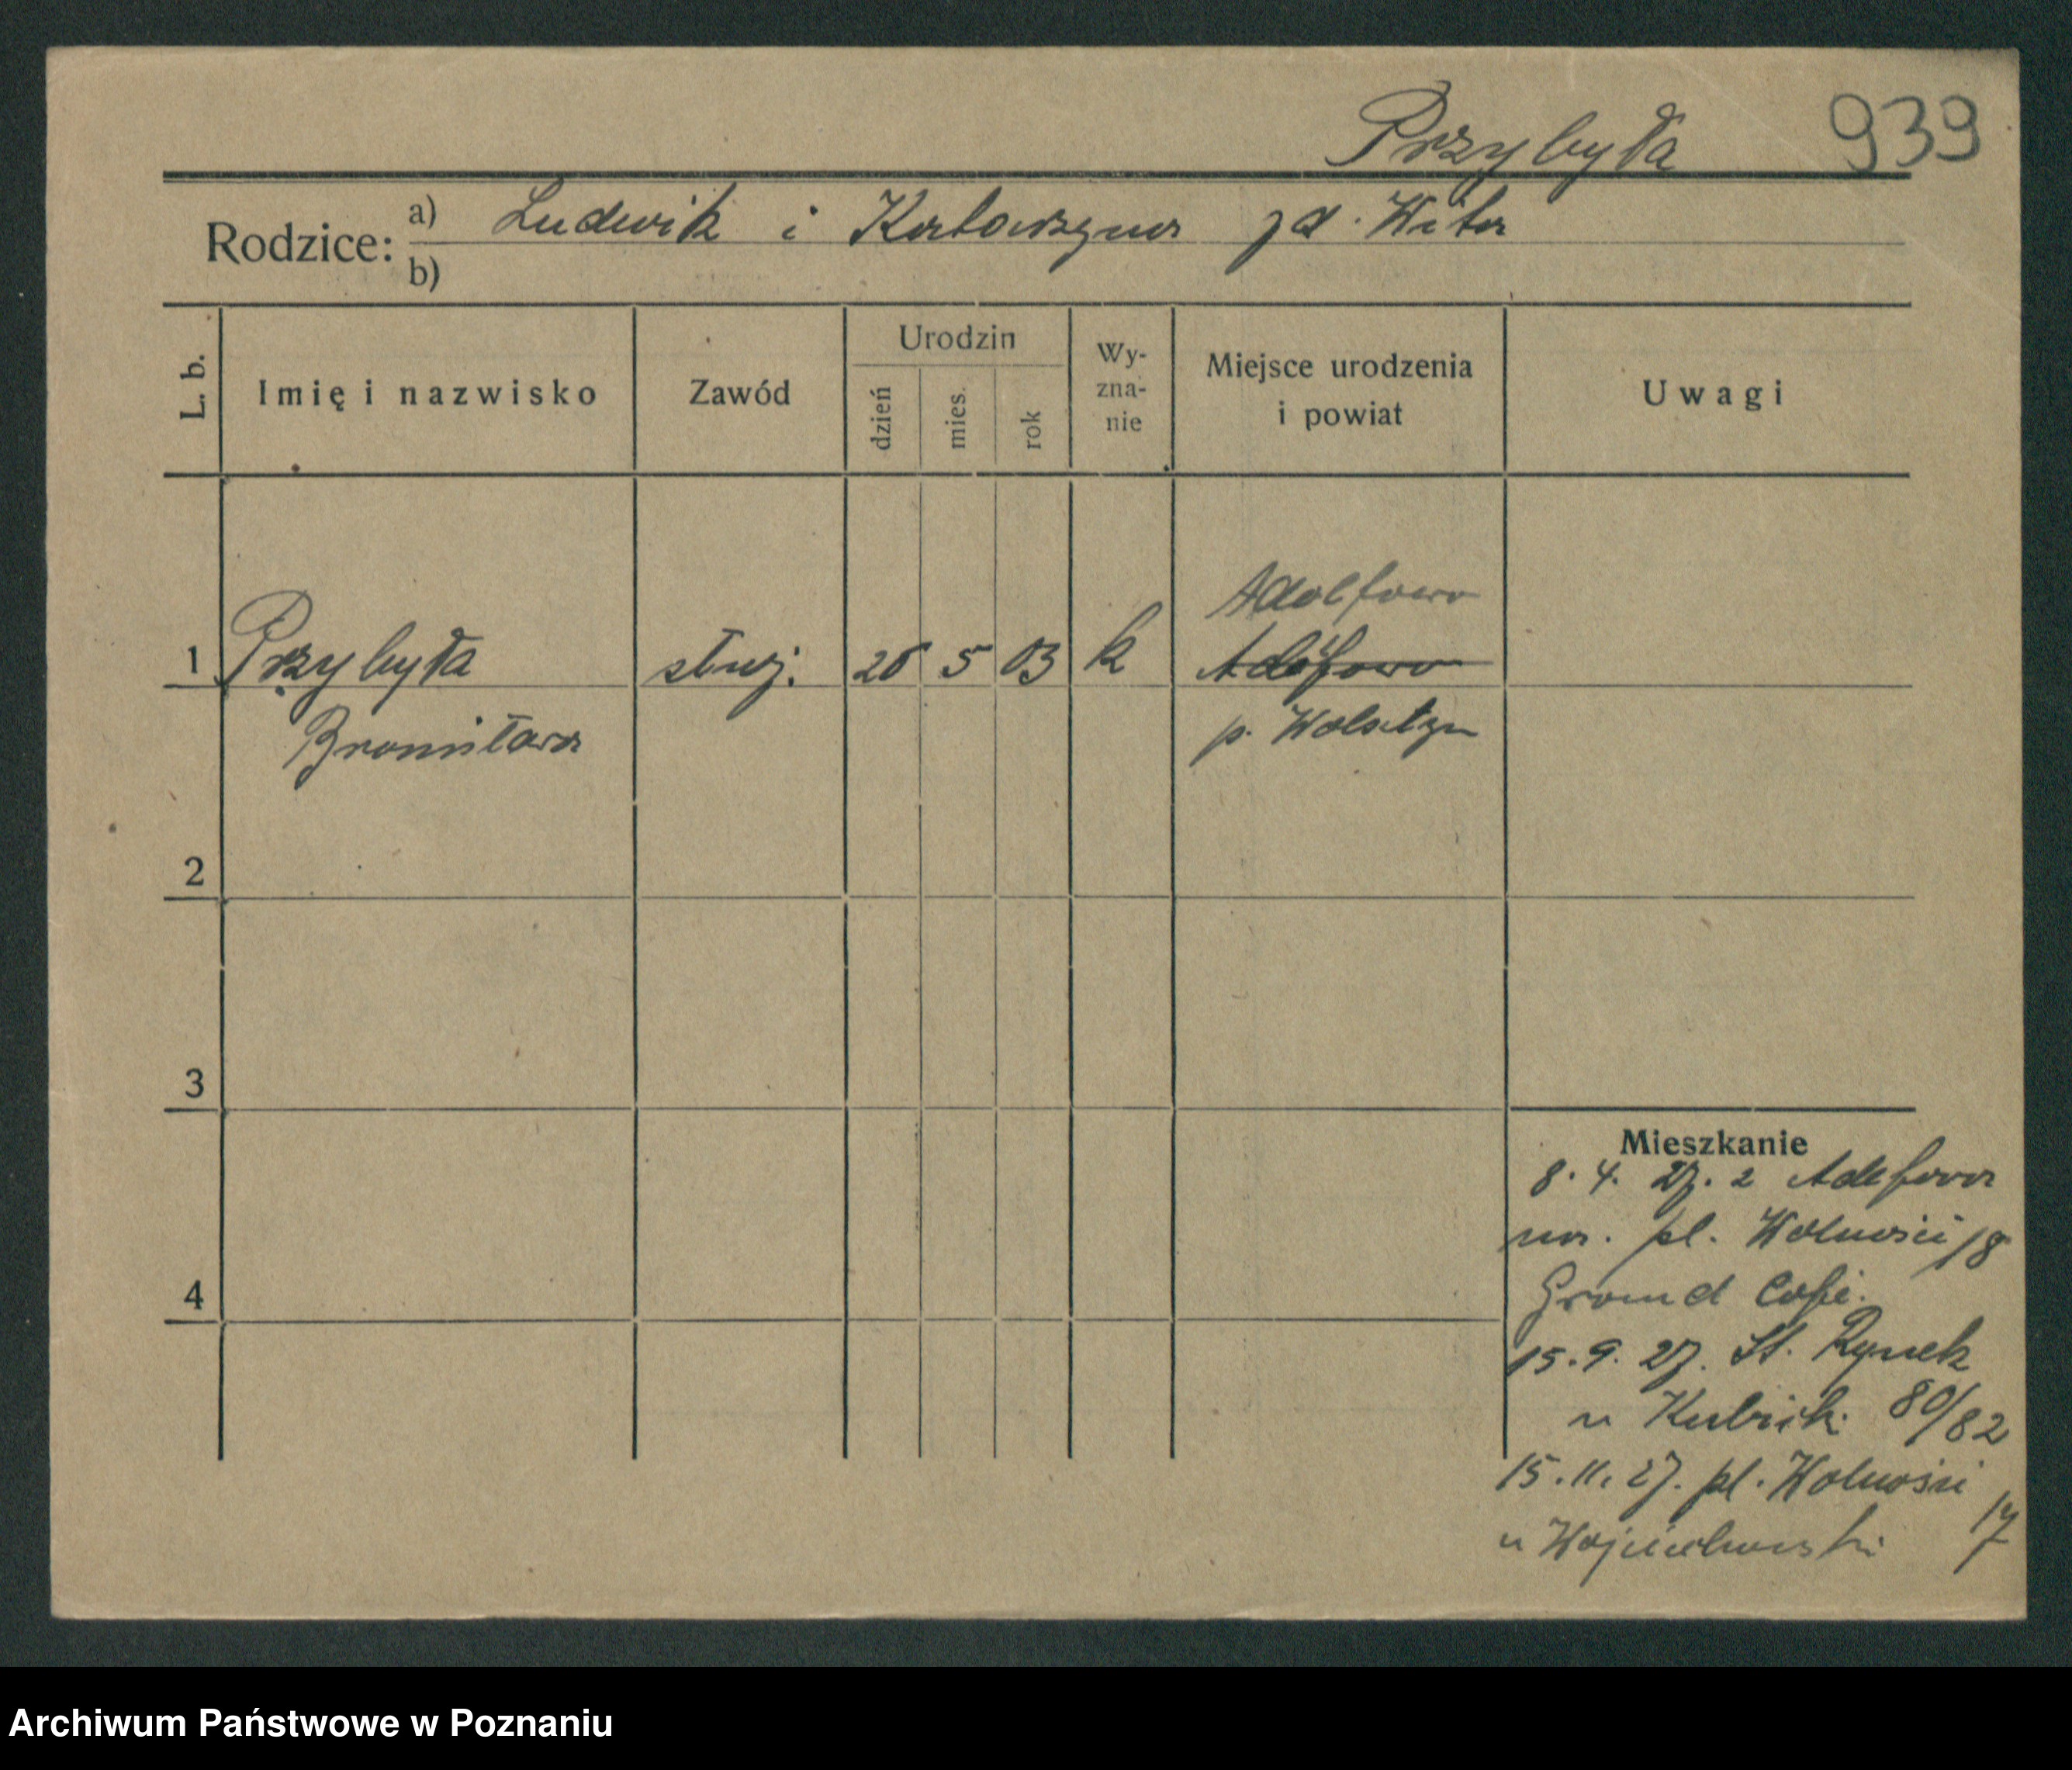 Przybyła 939
Rodzice: a) Ludwik i Katarzyna zd. Wita
b)
L. b. Imię i nazwisko Zawód Urodzin dzień mies. rok Wy-zna-nie Miejsce urodzenia i powiat Uwagi
Adolfowo
1 Przybyła służ. 26 5 03 k Adolfowo
Bronisława p. Wolsztyn
2
3
Mieszkanie
8. 4. 27. z Adolfowa
na. pl. Wolności 18
4 Grand Cafe.
15. 9. 27. St. Rynek
u Kubick. 80/82
15. 11. 27. pl. Wolności
u Wojciechowski 17
Archiwum Państwowe w Poznaniu